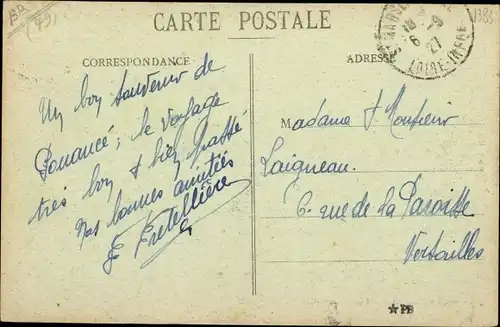 BR
(49)
CARTE POSTALE
CORRESPONDANCE
ADRESSE
LOIRE-INFRE
6-9
27
Un bon souvenir de
Pouancé ; le voyage
très bon & bien passé
Nos bonnes amitiés
F Fretellière
Madame & Monsieur
Laigneau.
6. rue de La Paroisse
Versailles
★PB